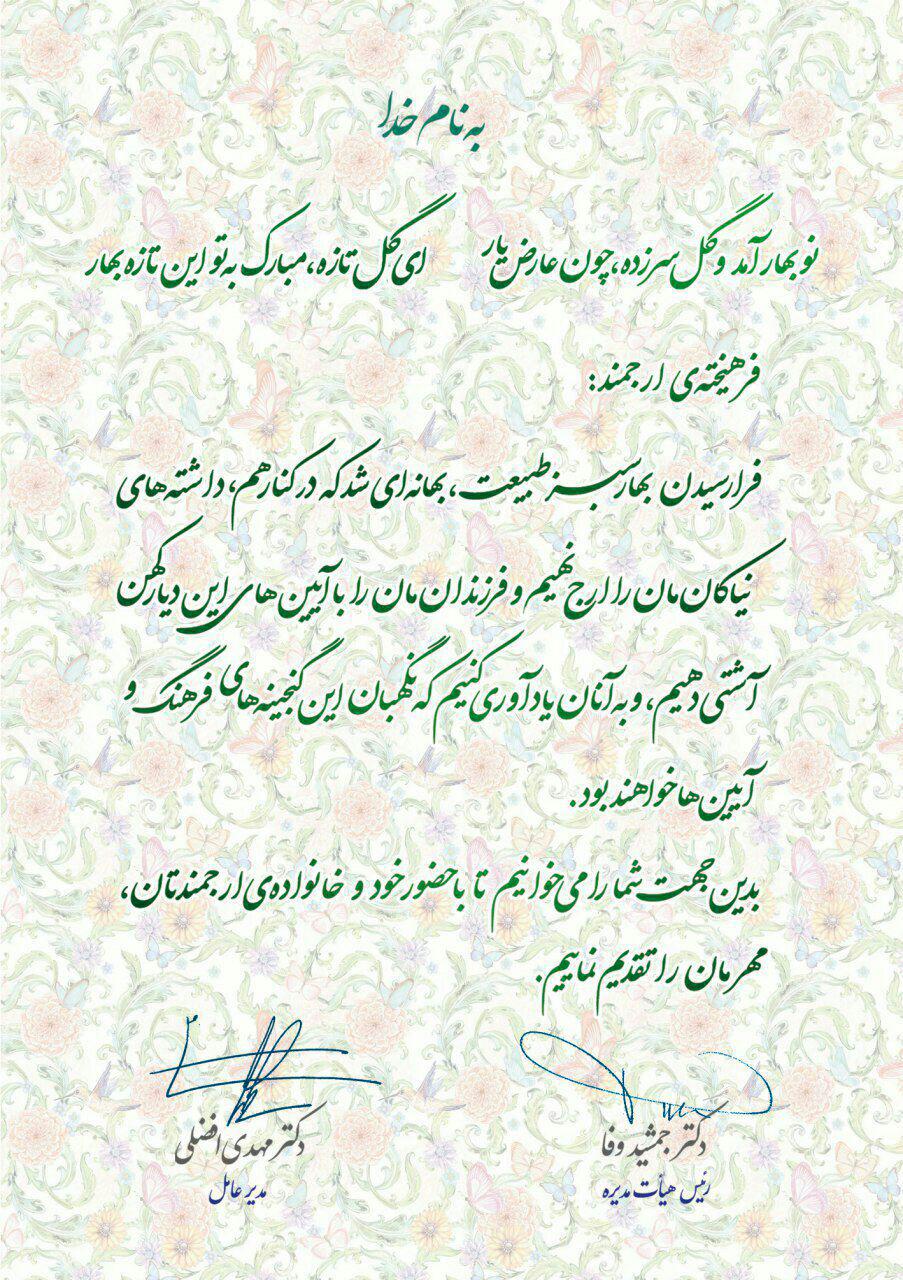 به نام خدا
نوبهار آمد و گل سرزده، چون عارض یار    ای گل تازه، مبارک به تو این تازه بهار
فرهیخته‌ی ارجمند:
فرارسیدن بهار سبز طبیعت، بهانه‌ای شد که در کنار هم، داشته‌های
نیاکان‌مان را ارج نهیم و فرزندان‌مان را با آیین‌های این دیار کهن
آشتی دهیم، و به آنان یادآوری کنیم که نگهبان این گنجینه‌های فرهنگ و
آیین‌ها خواهند بود.
بدین جهت شما را می‌خوانیم تا با حضور خود و خانواده‌ی ارجمندتان،
مهرمان را تقدیم نماییم.
دکتر جمشید وفا    دکتر مهدی افضلی
رئیس هیأت مدیره    مدیر عامل